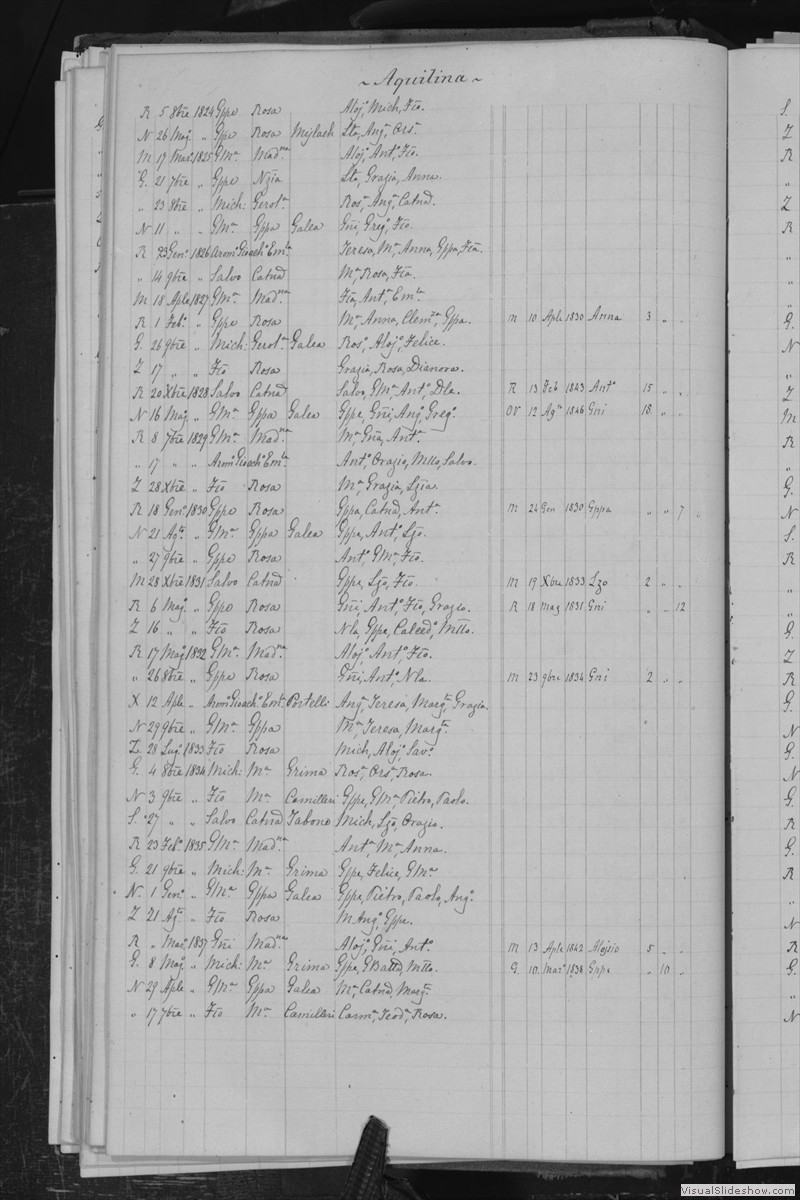 ~ Aquilina ~
R 5 8bre 1824 Gppe Rosa Aloj, Mich, Fco.
N 26 Mag. „ Gppe Rosa Mifsud
M 17 Mar. 1825 GMa. Madna Aloj. Anto. Fco.
G. 21 7bre „ Gppe Nzia Grazia, Anna.
„ 23 8bre „ Mich: Gerola. Rosa, Anga, Catnd.
N 11 „ „ GMa. Gppa Galea Gni, Grego, Fco.
R 23 Geno. 1826 Armo. Gioacho. Emla. Teresa, Ma. Anna, Gppa, Fca.
„ 14 9bre „ Salvo Catnd Ma, Rosa, Fca.
M 18 Aple 1827 GMa. Madna Fca, Anta, Emla.
R 1 Febo. „ Gppe Rosa Ma, Anna, Clemta, Gppa. M 10 Aple 1830 Anna 3 „ „
G. 26 9bre „ Mich: Gerola. Galea Roso, Alojo, Felice.
Z 17 „ „ Fco Rosa Grazia, Rosa, Dianora.
R 20 Xbre 1828 Salvo Catnd Salvo, GMa. Anto, Dla. R 13 Feb 1843 Anto 15 „ „
N 16 Mag. „ GMa. Gppa Galea Gppe, Gni, Ango, Grego. OV 12 Ago 1846 Gni 18 „ „
R 8 7bre 1829 GMa. Madna Ma, Gna, Anta.
„ 17 „ „ Armo. Gioacho. Emla. Anto, Orazio, Mtto, Salvo.
Z 28 Xbre „ Fco Rosa Ma, Grazia, Lzia.
R 18 Geno. 1830 Gppe Rosa Gppa, Catnd, Anta. M 24 Gen 1830 Gppa „ „ 7
N 21 Ago. „ GMa. Gppa Galea Gppe, Anto, Lzo.
„ 27 9bre „ Gppe Rosa Anto, GMa, Fco.
M 28 Xbre 1831 Salvo Catnd Gppe, Lzo, Fco. M 19 Xbre 1833 Lzo 2 „ „
R 6 Mag. „ Gppe Rosa Gni, Anto, Fco, Grazio. R 18 Mag 1831 Gni „ „ 12
Z 16 „ „ Fco Rosa Nla, Gppe, Calcedo, Mtto.
R 17 Mag. 1832 GMa. Madna Alojo, Anto, Fco.
„ 26 8bre „ Gppe Rosa Gni, Anto, Nla. M 23 9bre 1834 Gni 2 „ „
X 12 Aple „ Armo. Gioacho. Emla. Portelli Anga, Teresa, Marga, Grazia.
N 29 9bre „ GMa. Gppa Ma, Teresa, Marga.
Z 28 Lug. 1833 Fco Rosa Mich, Aloj, Savo.
G. 4 8bre 1834 Mich: Ma. Grima Rosa, Orsa, Rosa.
N 3 9bre „ Fco Ma. Camilleri Gppe, GMa, Pietro, Paolo.
S. 27 „ „ Salvo Catnd Tabone Mich, Lzo, Orazio.
R 23 Febo. 1835 GMa. Madna Anta, Ma, Anna.
G. 21 9bre „ Mich: Ma. Grima Gppe, Felice, GMa.
N. 1 Geno. „ GMa. Gppa Galea Gppe, Pietro, Paolo, Ango.
Z 21 Ago. „ Fco Rosa MAngo, Gppe.
R „ Mar. 1837 Gni Madna Alojo, Gni, Anto. M 13 Aple 1842 Alojsio 5 „ „
G. 8 Mag. „ Mich: Ma. Grima Gppe, GBatta, Mtto. G. 10 Maro 1838 Gppe „ 10 „
N 29 Aple „ GMa. Gppa Galea Ma, Catnd, Marga.
„ 17 7bre „ Fco Ma. Camilleri Carma, Teoda, Rosa.
VisualSlideshow.com